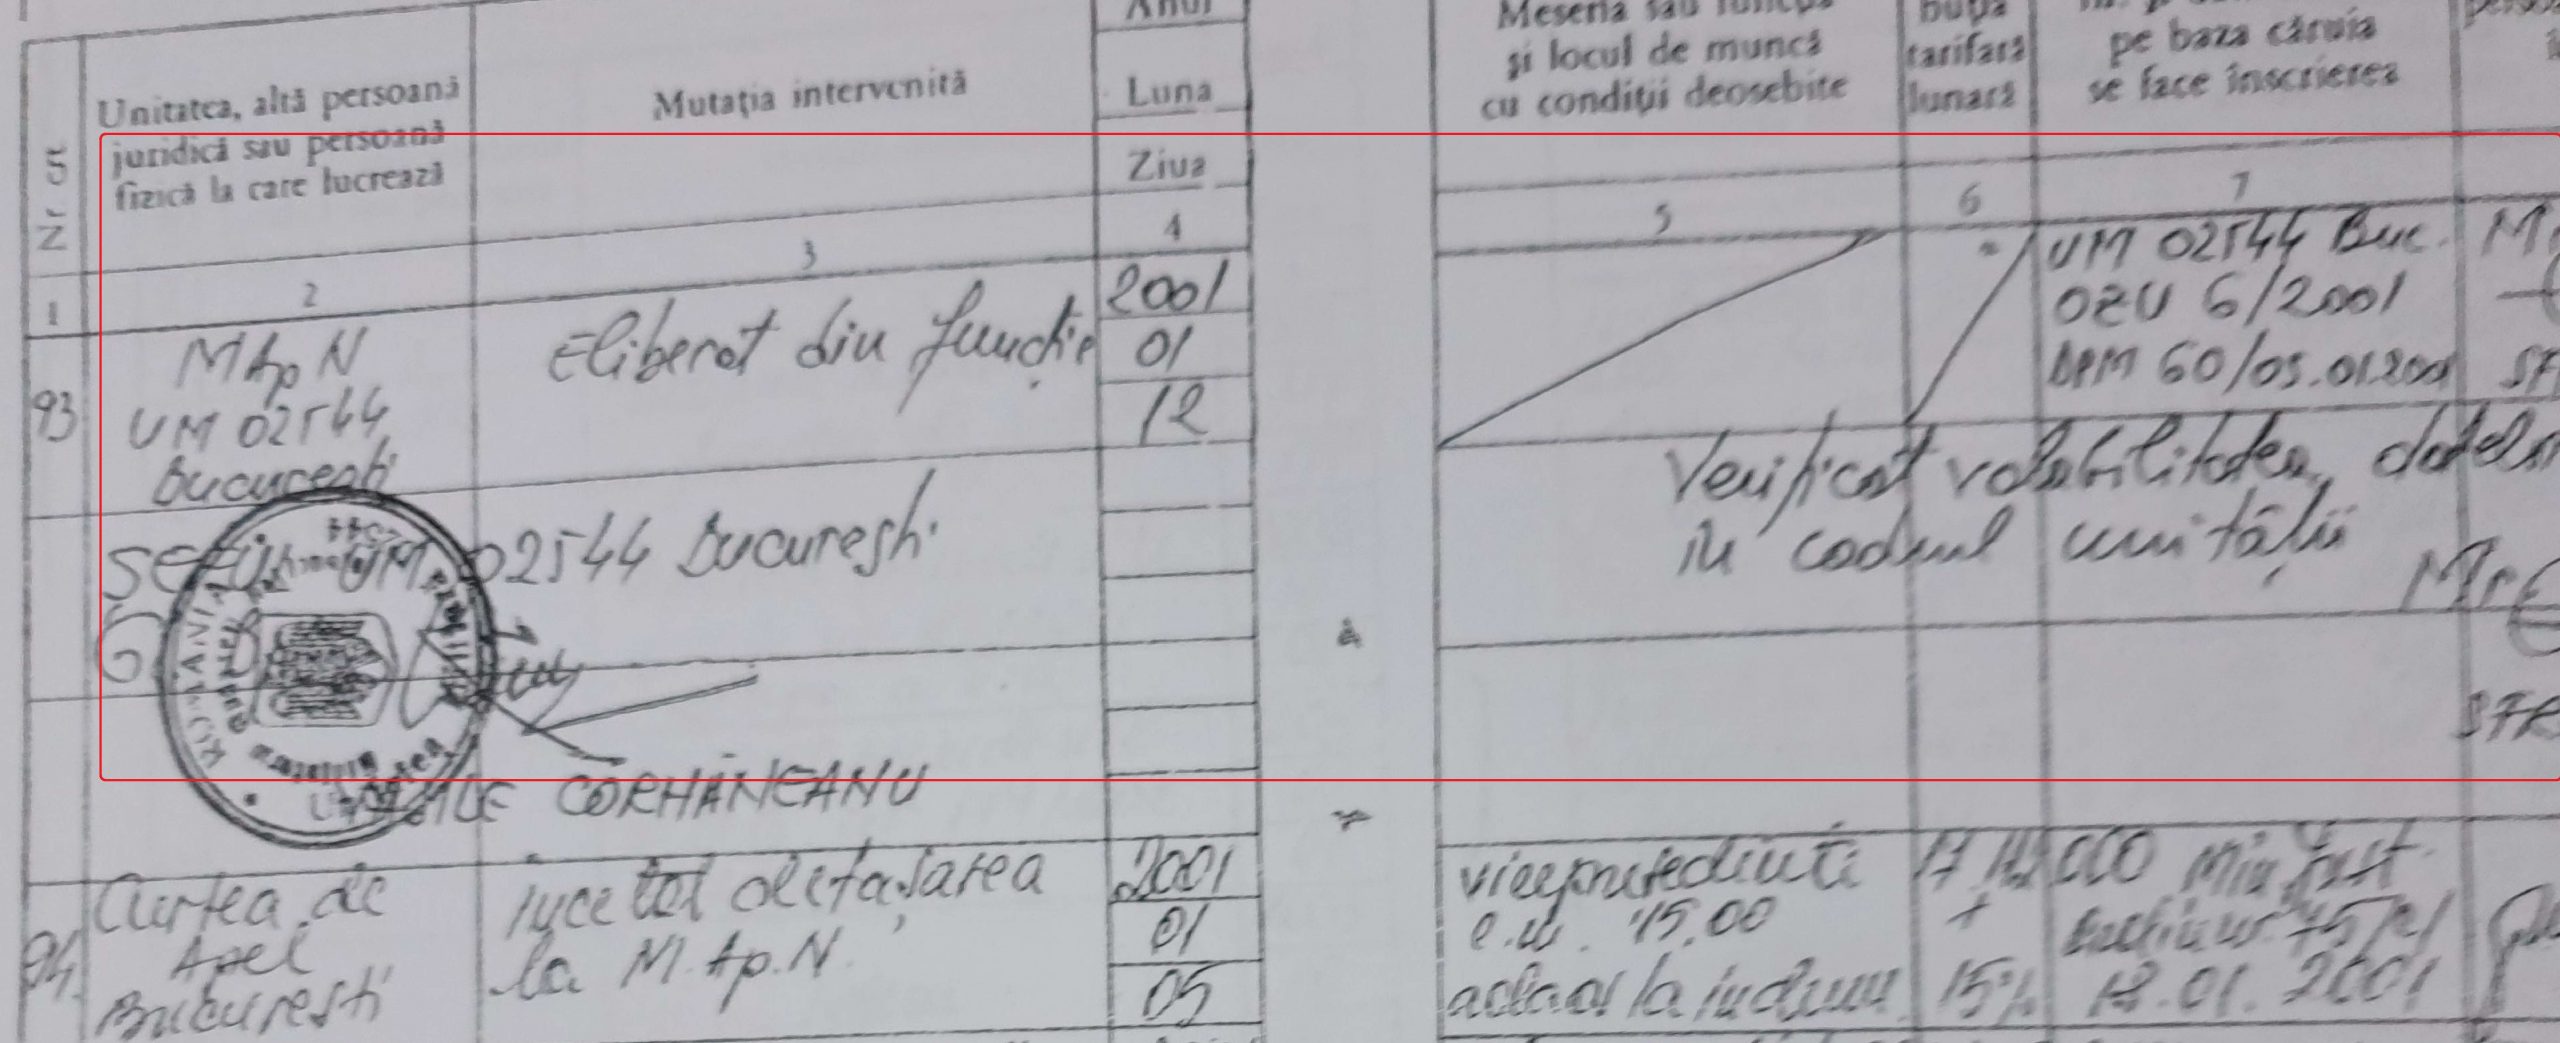 Anul
Nr crt
Unitatea, altă persoană
juridică sau persoană
fizică la care lucrează
Mutația intervenită
Luna
Ziua
Meseria sau funcția
și locul de muncă
cu condiții deosebite
tarifară
lunară
pe baza căruia
se face înscrierea
1 2 3 4 5 6 7
93
MApN
UM 02544
București
Eliberat din funcție
2001
01
12
UM 02544 Buc.
OZU 6/2001
DPM 60/05.01.2001
Verificat valabilitatea datelor
în cadrul unității
UM 02544 București
CORHĂNEANU
94.
Curtea de
Apel
București
încetat detașarea
la M.Ap.N.
2001
01
05
vicepreședinte
15.00
la
+
15%
000
Min Just.
75
12.01.2001